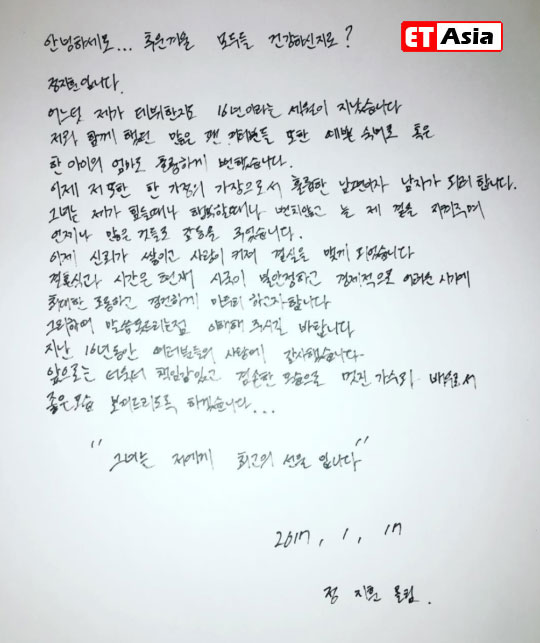 ET Asia
안녕하세요... 추운겨울 모두들 건강하신지요?
정지훈입니다.
어느덧 제가 데뷔한지도 16년이라는 세월이 지났습니다
저와 함께 했던 많은 팬 여러분들 또한 예쁜 숙녀로 혹은
한 아이의 엄마로 훌륭하게 변했습니다.
이제 저 또한 한 가정의 가장으로서 훌륭한 남편이자 남자가 되려 합니다.
그녀는 제가 힘들때나 행복할때나 변치않고 늘 제 곁을 지켜주며
언제나 많은 것들로 감동을 주었습니다.
이제 신뢰가 쌓이고 사랑이 커져 결실을 맺게 되었습니다
결혼식과 시간은 현재 시국이 불안정하고 경제적으로 어려운 시기에
최대한 조용하고 경건하게 마무리 하고자합니다
그리하여 말씀못드리는점 이해해 주시길 바랍니다
지난 16년동안 여러분들의 사랑에 감사했습니다.
앞으로는 더욱더 책임감있고 겸손한 모습으로 멋진 가수와 배우로서
좋은모습 보여드리도록 하겠습니다...
"그녀는 저에게 최고의 선물 입니다"
2017, 1, 17
정 지훈 올림.